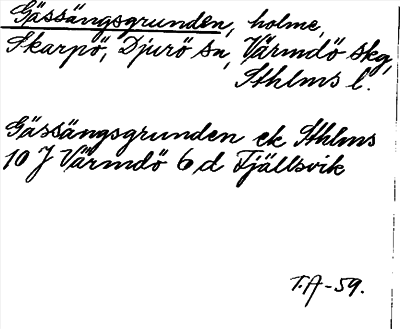 Gässängsgrunden, holme,
Skarpö, Djurö sn, Värmdö skg,
Sthlms l.
Gässängsgrunden ek Sthlms
10 J Värmdö 6 d Fjällsvik
T.A-59.